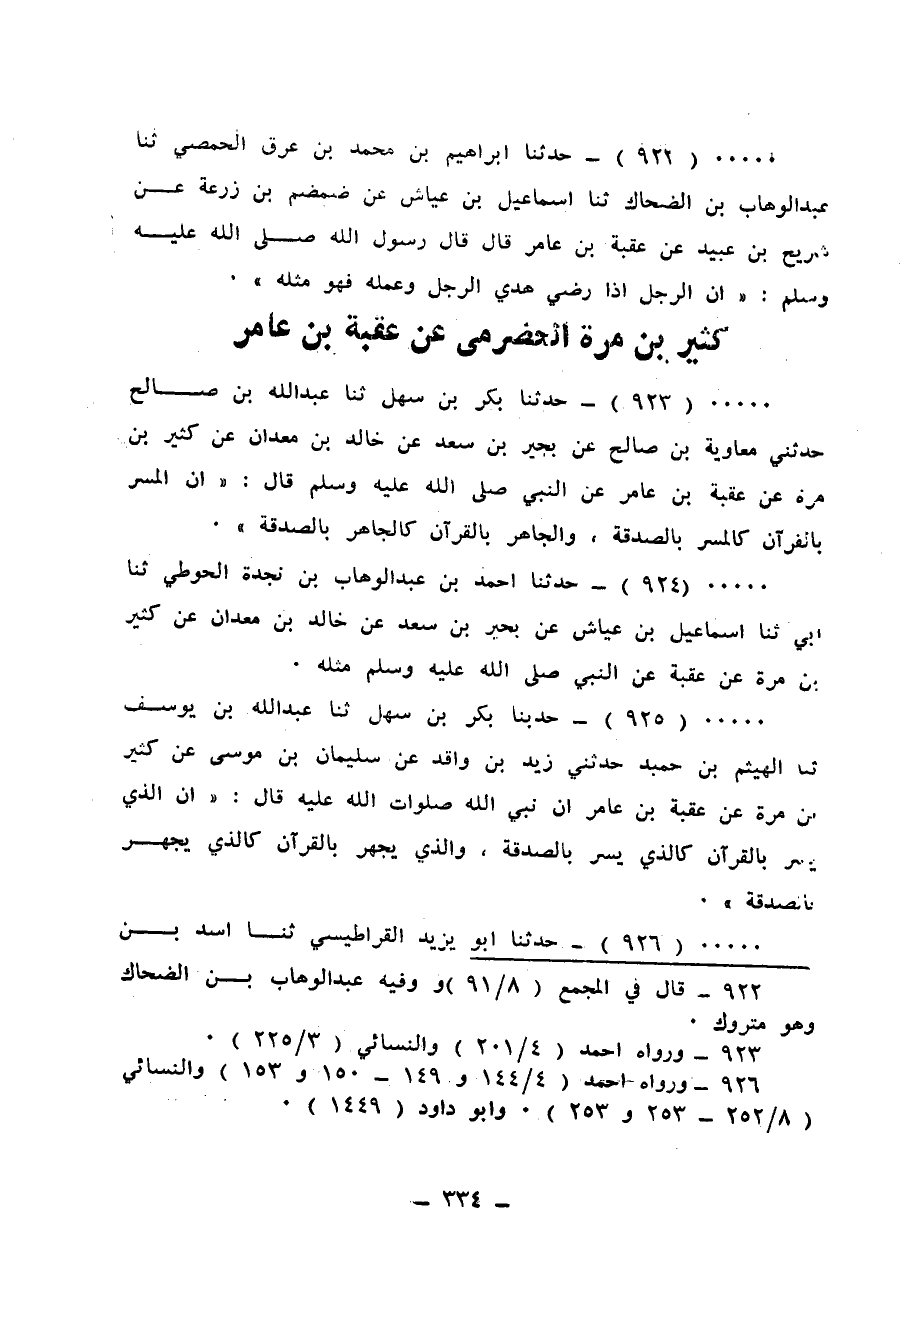 ..... ( ٩٢٢ ) ــ حدثنا ابراهيم بن محمد بن عرق الحمصي ثنا
عبدالوهاب بن الضحاك ثنا اسماعيل بن عياش عن ضمضم بن زرعة عــن
شريح بن عبيد عن عقبة بن عامر قال قال رسول الله صــلى الله عليــه
وسلم : « ان الرجل اذا رضي هدي الرجل وعمله فهو مثله » ٠
كثير بن مرة الحضرمى عن عقبة بن عامر
..... ( ٩٢٣ ) ــ حدثنا بكر بن سهل ثنا عبدالله بن صــالح
حدثني معاوية بن صالح عن بجير بن سعد عن خالد بن معدان عن كثير بن
مرة عن عقبة بن عامر عن النبي صلى الله عليه وسلم قال : « ان المسر
بالقرآن كالمسر بالصدقة ، والجاهر بالقرآن كالجاهر بالصدقة » ٠
..... (٩٢٤ ) ــ حدثنا احمد بن عبدالوهاب بن نجدة الحوطي ثنا
ابي ثنا اسماعيل بن عياش عن بحير بن سعد عن خالد بن معدان عن كثير
بن مرة عن عقبة عن النبي صلى الله عليه وسلم مثله ٠
..... ( ٩٢٥ ) ــ حدبنا بكر بن سهل ثنا عبدالله بن يوســف
ثنا الهيثم بن حميد حدثني زيد بن واقد عن سليمان بن موسى عن كثير
بن مرة عن عقبة بن عامر ان نبي الله صلوات الله عليه قال : « ان الذي
يسر بالقرآن كالذي يسر بالصدقة ، والذي يجهر بالقرآن كالذي يجهــر
بالصدقة » ٠
..... ( ٩٢٦ ) ــ حدثنا ابو يزيد القراطيسي ثنــا اسد بــن
٩٢٢ ــ قال في المجمع ( ٩١/٨ )و وفيه عبدالوهاب بــن الضحاك
وهو متروك ٠
٩٢٣ ــ ورواه احمد ( ٢٠١/٤ ) والنسائي ( ٢٢٥/٣ ) ٠
٩٢٦ ــ ورواه احمد ( ١٤٤/٤ و ١٤٩ ــ ١٥٠ و ١٥٣ ) والنسائي
( ٢٥٢/٨ ــ ٢٥٣ و ٢٥٣ ) ٠ وابو داود ( ١٤٤٩ ) ٠
ــ ٣٣٤ ــ